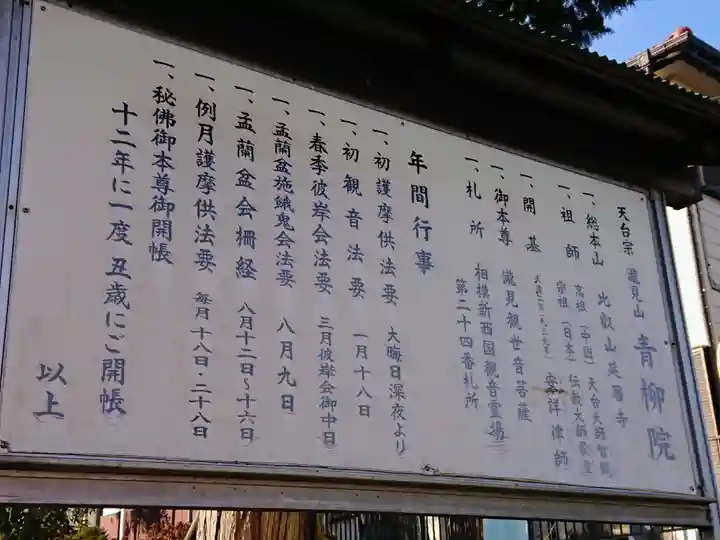 天台宗 瀧見山 青柳院
一、総本山 比叡山 延暦寺
一、祖師 高祖(中国)天台大師智顗
宗祖(日本)伝教大師最澄
一、開基 安洋律師
一、御本尊 瀧見観世音菩薩
一、札所 相模新西国観音霊場
第二十四番札所
年間行事
一、初護摩供法要 大晦日深夜より
一、初観音法要 一月十八日
一、春季彼岸会法要 三月彼岸会御中日
一、盂蘭盆施餓鬼会法要 八月九日
一、盂蘭盆会棚経 八月十二日～十六日
一、例月護摩供法要 毎月十八日・二十八日
一、秘佛御本尊御開帳
十二年に一度 丑歳にご開帳
以上